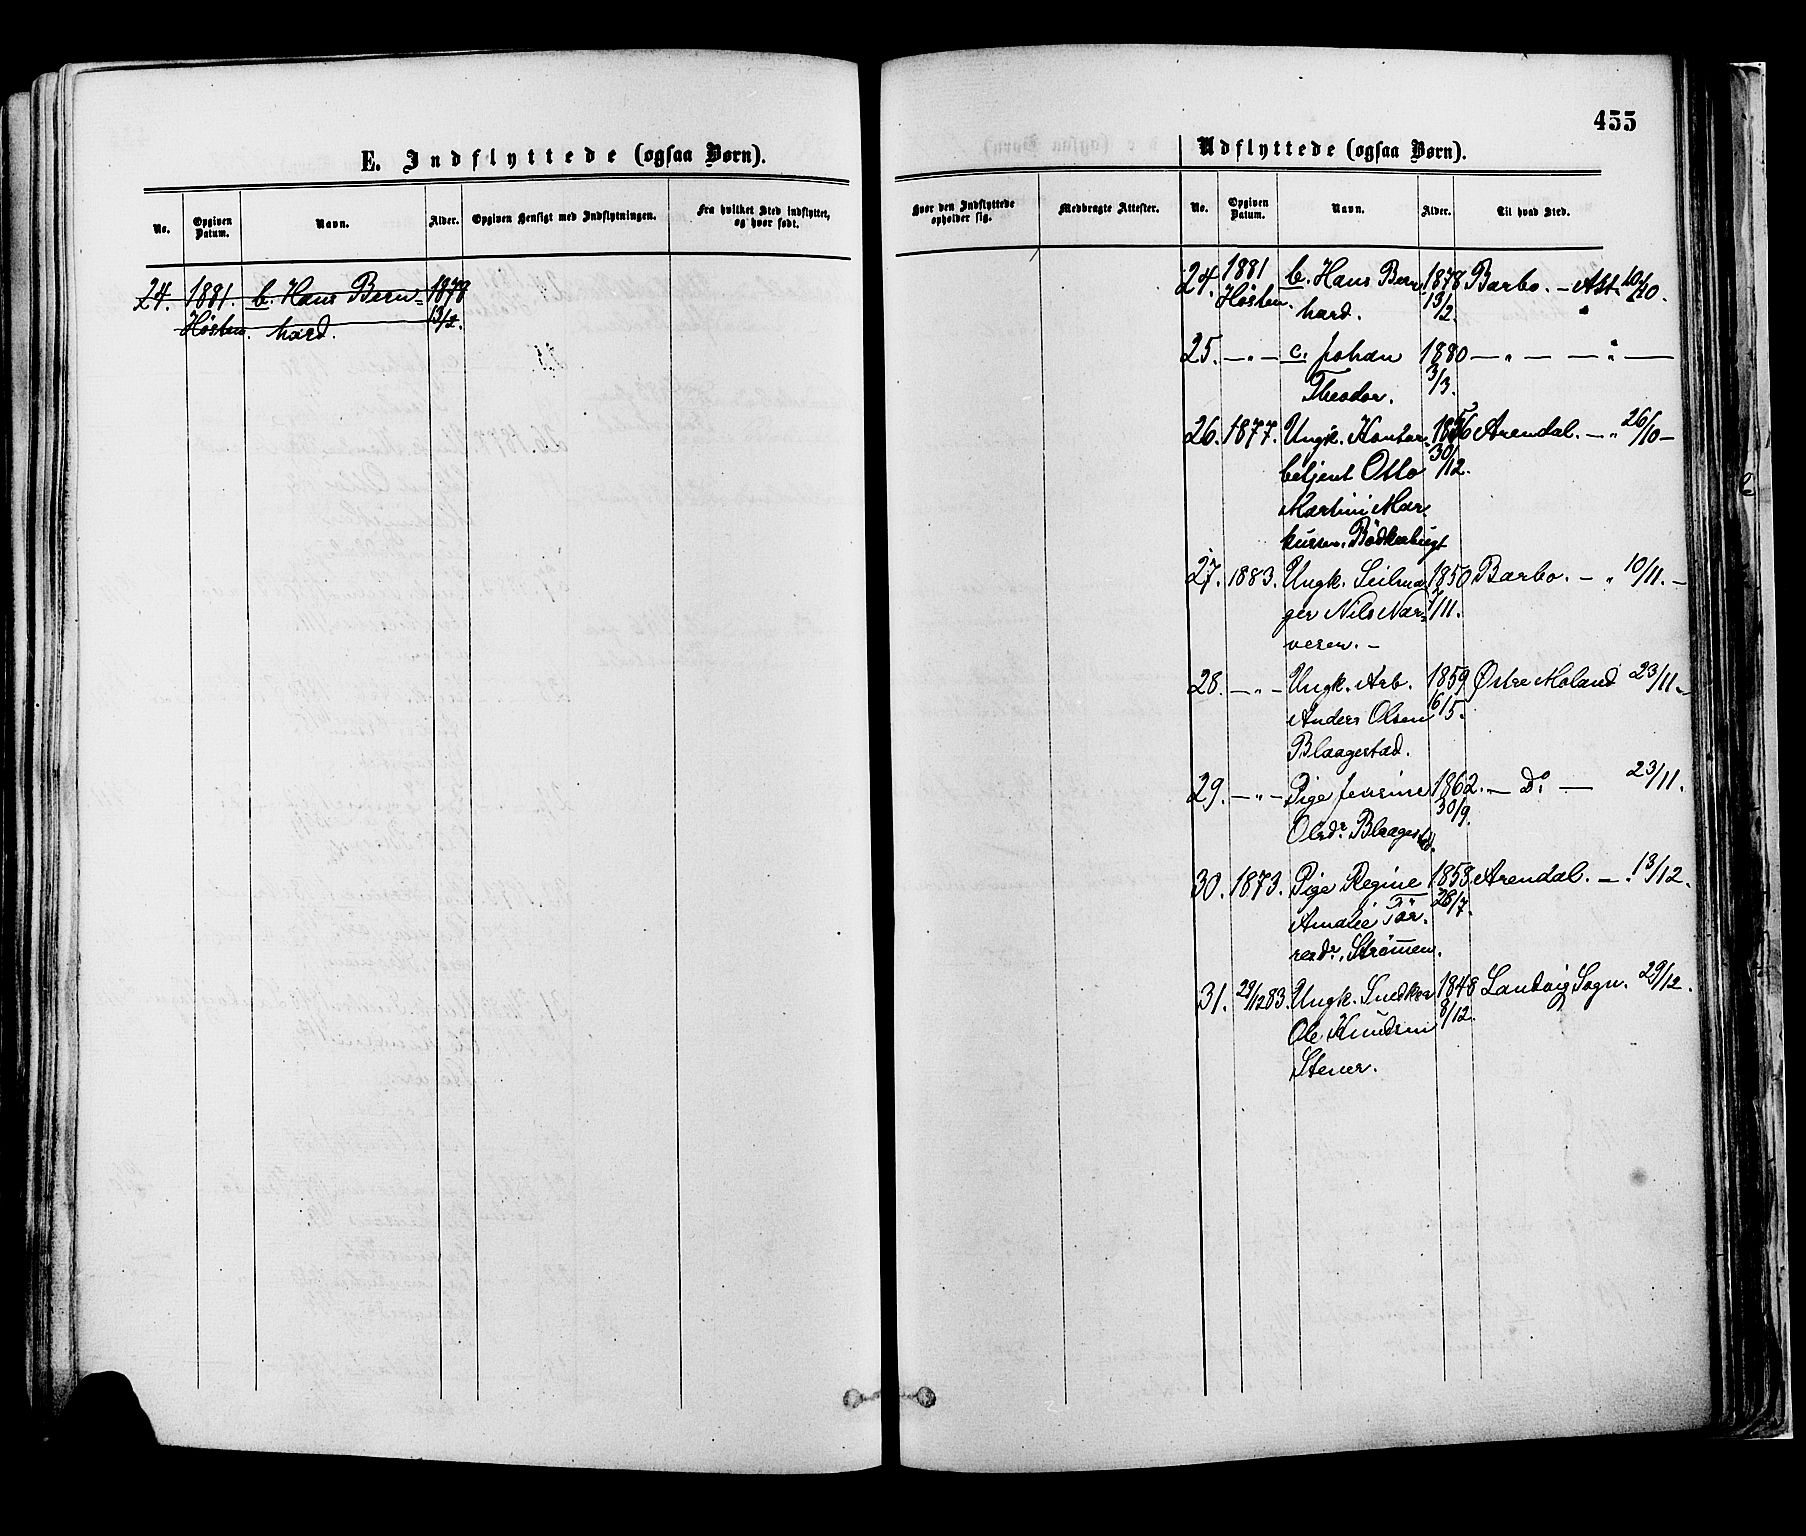 455
E. Indflyttede (ogsaa Børn).
No. Opgiven Datum. Navn. Alder. Opgiven Hensigt med Indflytningen. Fra hvilket Sted indflyttet, og hvor født.
24. 1881. b. Hans Bern- 1878
Høsten. hard. 13/2.
Udflyttede (ogsaa Børn).
Hvor den Indflyttede opholder sig. Medbragte Attester. No. Opgiven Datum. Navn. Alder. Til hvad Sted.
24. 1881 b. Hans Bern- 1878 Barbo. - Att. 10/10.
Høsten. hard. 13/2.
25. -"- c. Johan 1880 - " - - " -
Theodor. 3/3.
26. 1877. Ungk. Kontor- 1856 Arendal. - " 26/10 -
betjent Otto 30/12.
Martini Mar-
kussen. Bödkerbugt
27. 1883. Ungk. Seilma- 1850 Barbo. - " 10/11. -
ger Nils Nar- /11.
vesen. -
28. -"- Ungk. Arb. 1859 Østre Moland 23/11 -
Anders Olsen 6/5.
Blaagestad.
29. -"- Pige Jensine 1862. - Do. - 23/11.
Olsdr. Blaagestad. 30/9.
30. 1873. Pige Regine 1858 Arendal. - . 13/12.
Amalie Tör- 28/7.
resdr. Strømmen.
31. 29/12 83. Ungk. Snedker 1848 Landvig Sogn. 29/12.
Ole Knudsen 8/12.
Stener.